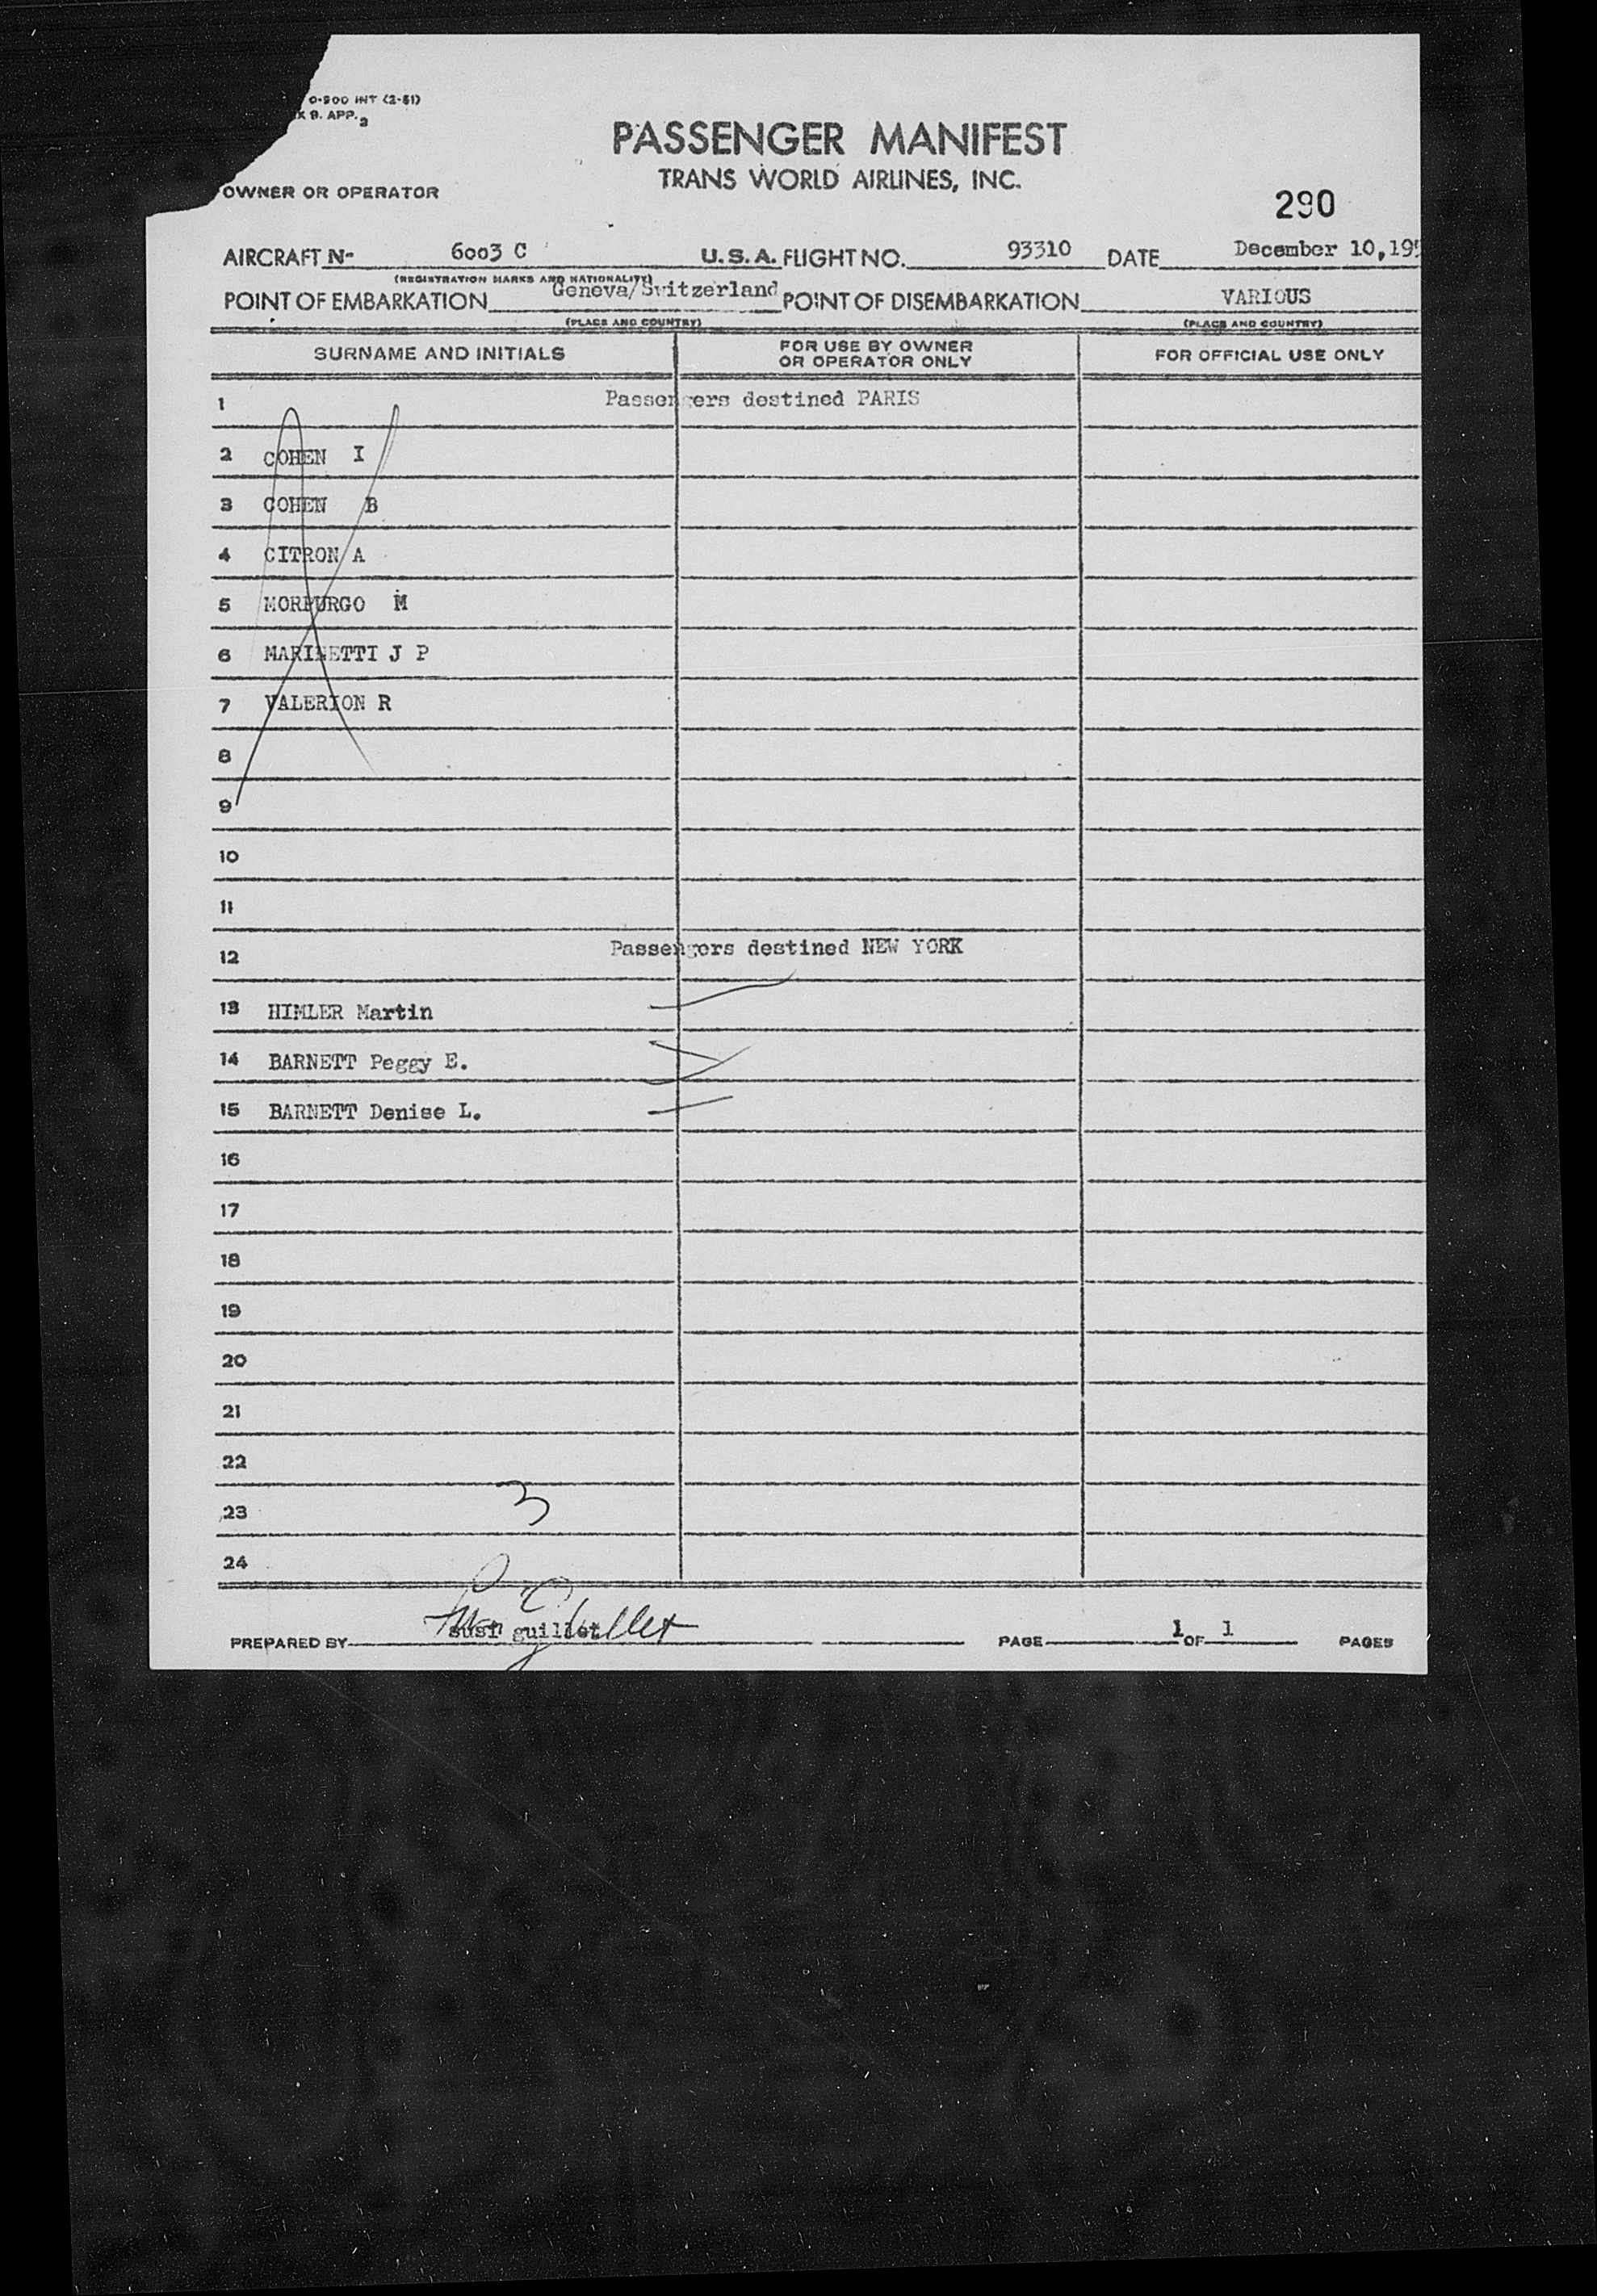 0-900 INT (2-51)
X 9. APP. 2
PASSENGER MANIFEST
TRANS WORLD AIRLINES, INC.
OWNER OR OPERATOR
290
AIRCRAFT N- 6003 C U.S.A. FLIGHT NO. 93310 DATE December 10, 195
(REGISTRATION MARKS AND NATIONALITY)
POINT OF EMBARKATION Geneva/Switzerland POINT OF DISEMBARKATION VARIOUS
(PLACE AND COUNTRY) (PLACE AND COUNTRY)
SURNAME AND INITIALS FOR USE BY OWNER OR OPERATOR ONLY FOR OFFICIAL USE ONLY
1 Passengers destined PARIS
2 COHEN I
3 COHEN B
4 CITRON A
5 MORPURGO M
6 MARINETTI J P
7 VALERION R
8
9
10
11
12 Passengers destined NEW YORK
13 HIMLER Martin
14 BARNETT Peggy E.
15 BARNETT Denise L.
16
17
18
19
20
21
22
23 3
24
PREPARED BY guillet PAGE 1 OF 1 PAGES